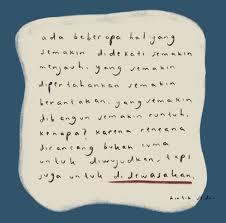 ada beberapa hal yang
semakin didekati semakin
menjauh. yang semakin
dipertahankan semakin
berantakan. yang semakin
dibangun semakin runtuh.
kenapa? karena rencana
dirancang bukan cuma
untuk diwujudkan. tapi
juga untuk didewasakan.